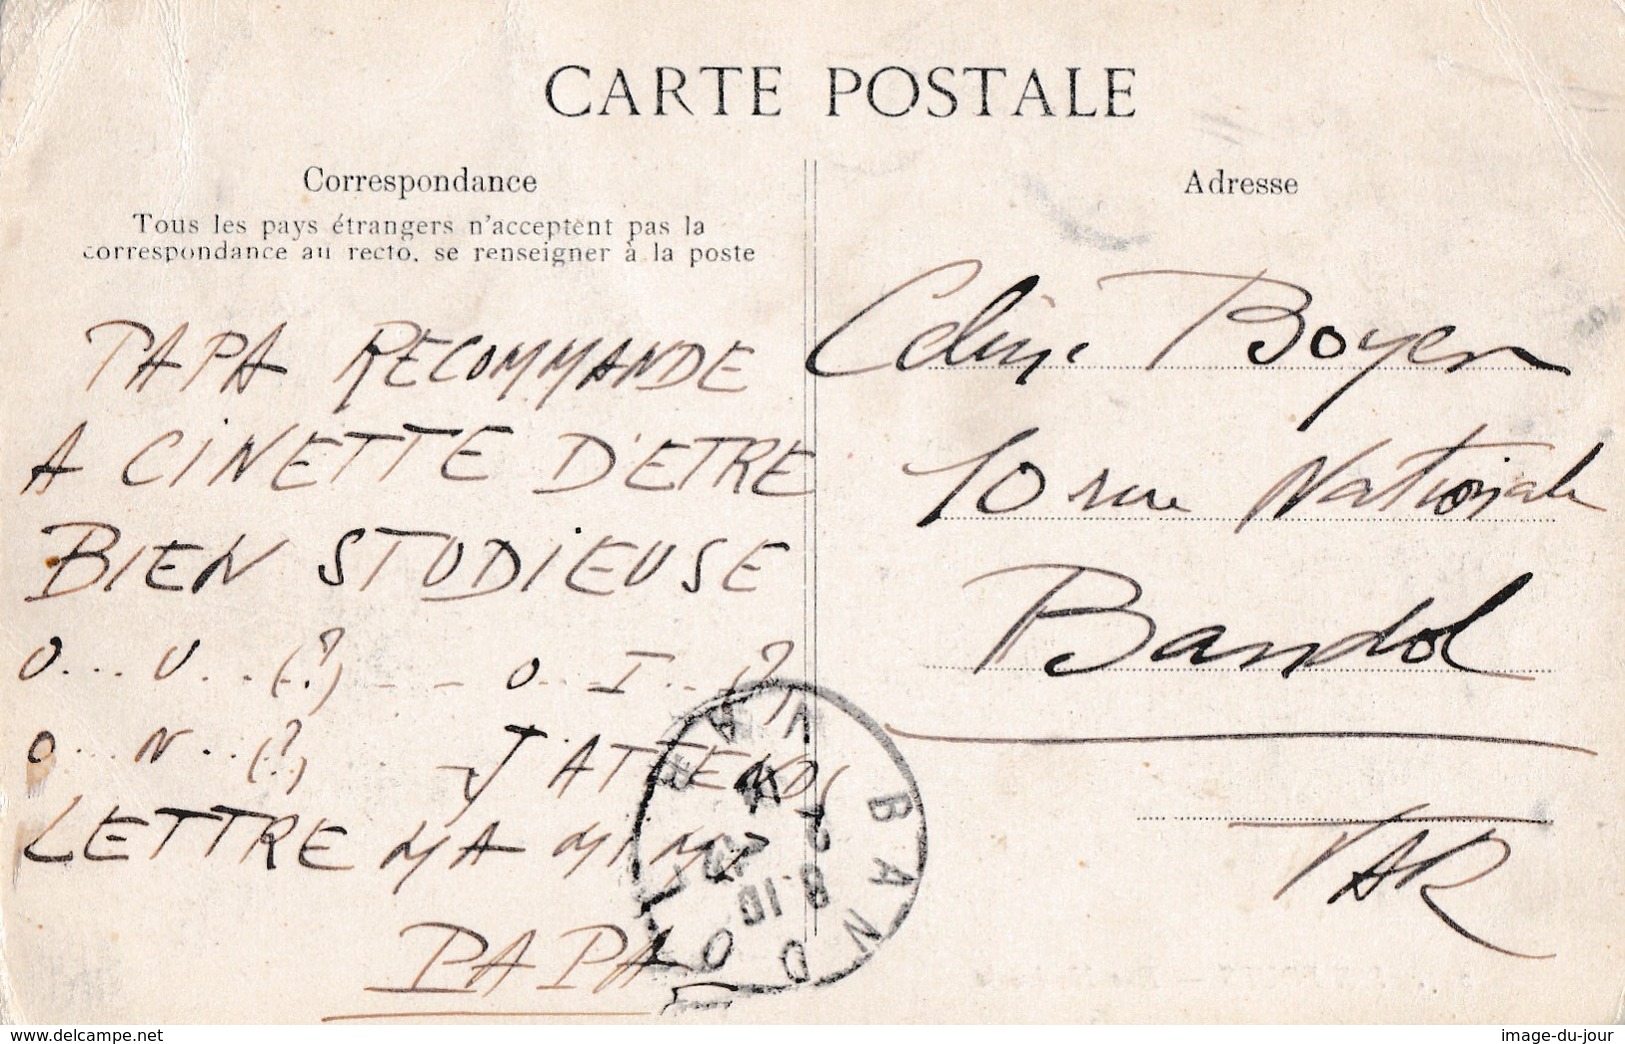 CARTE POSTALE
Correspondance
Tous les pays étrangers n'acceptent pas la
correspondance au recto, se renseigner à la poste
PAPA RECOMMANDE
A CINETTE D'ETRE
BIEN STUDIEUSE
O... U.. (?) - - O... I.. (?)
O... N.. (?) - J'ATTENDS
LETTRE MA MIMI
PAPA
Adresse
Celine Boyer
10 rue Nationale
Bandol
VAR
BANDOL
VAR
8 10
www.delcampe.net
image-du-jour